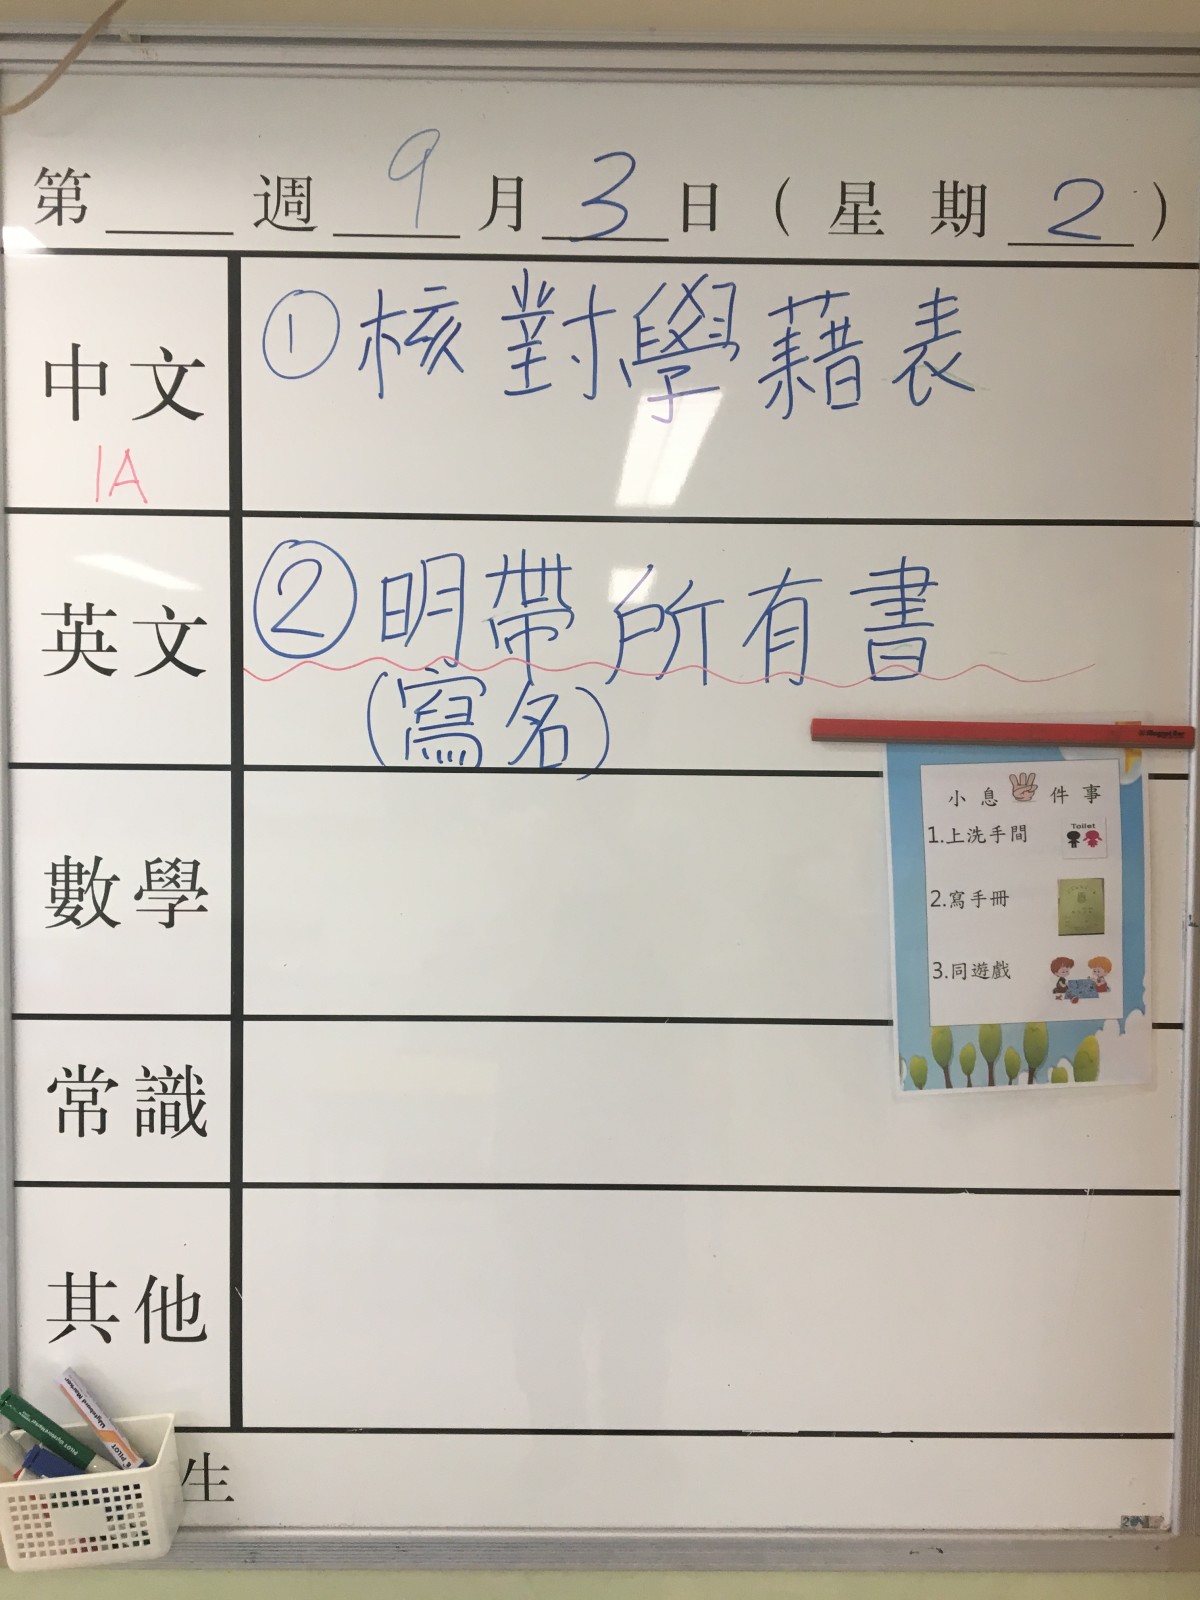 第 週 9 月 3 日 ( 星期 2 )
中文
1A
① 核對學藉表
英文
② 明帶所有書
(寫名)
數學
常識
其他
生
小息 件事
1.上洗手間
Toilet
2.寫手冊
3.同遊戲
Whiteboard Marker
PILOT
PILOT